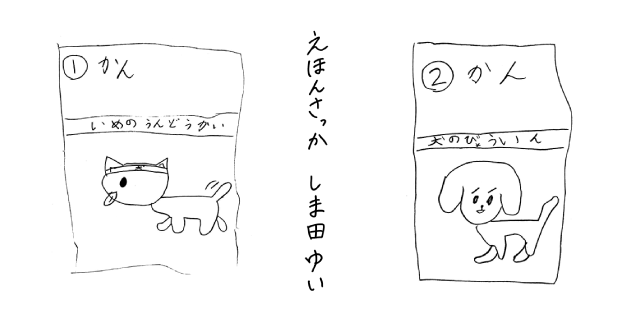 ①かん
いぬのうんどうかい
えほんさっか しま田ゆい
②かん
犬のびょういん